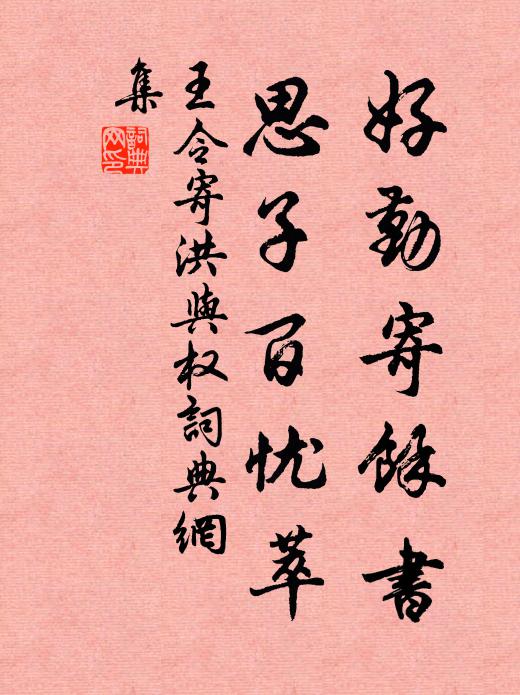 好勤寄餘書
思子百忧萃
王令寄洪與权詞典網
集
詞典網印